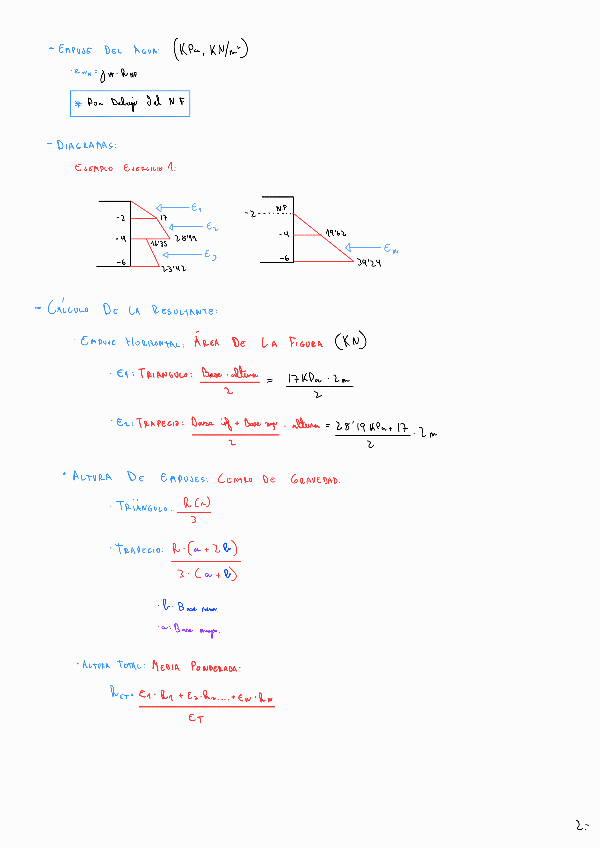 - EMPUJE DEL AGUA (KPa, KN/m²)
* Por Debajo Del NF
- DIAGRAMAS:
EJEMPLO EJERCICIO 1:
-2
17
E1
-4
28'19
E2
16'35
-6
23'42
E3
-2
NF
-4
19'62
-6
39'24
EW
- CÁLCULO DE LA RESULTANTE:
· EMPUJE HORIZONTAL: ÁREA DE LA FIGURA (KN)
· E1: TRIÁNGULO: Base · altura / 2 = 17 KPa · 2m / 2
· E2: TRAPECIO: Base inf + Base sup / 2 · altura = 28'19 KPa + 17 / 2 · 2m
· ALTURA DE EMPUJES: CENTRO DE GRAVEDAD.
· TRIÁNGULO: h (m) / 3
· TRAPECIO: h · (a + 2b) / 3 · (a + b)
· b: Base menor
· a: Base mayor.
· ALTURA TOTAL: MEDIA PONDERADA:
hET = E1 · h1 + E2 · h2 .... + EN · hN / ET
2.-